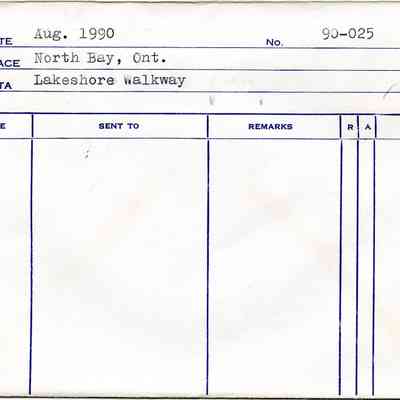 TE Aug. 1990 No. 90-025
ACE North Bay, Ont.
TA Lakeshore Walkway
E SENT TO REMARKS R A